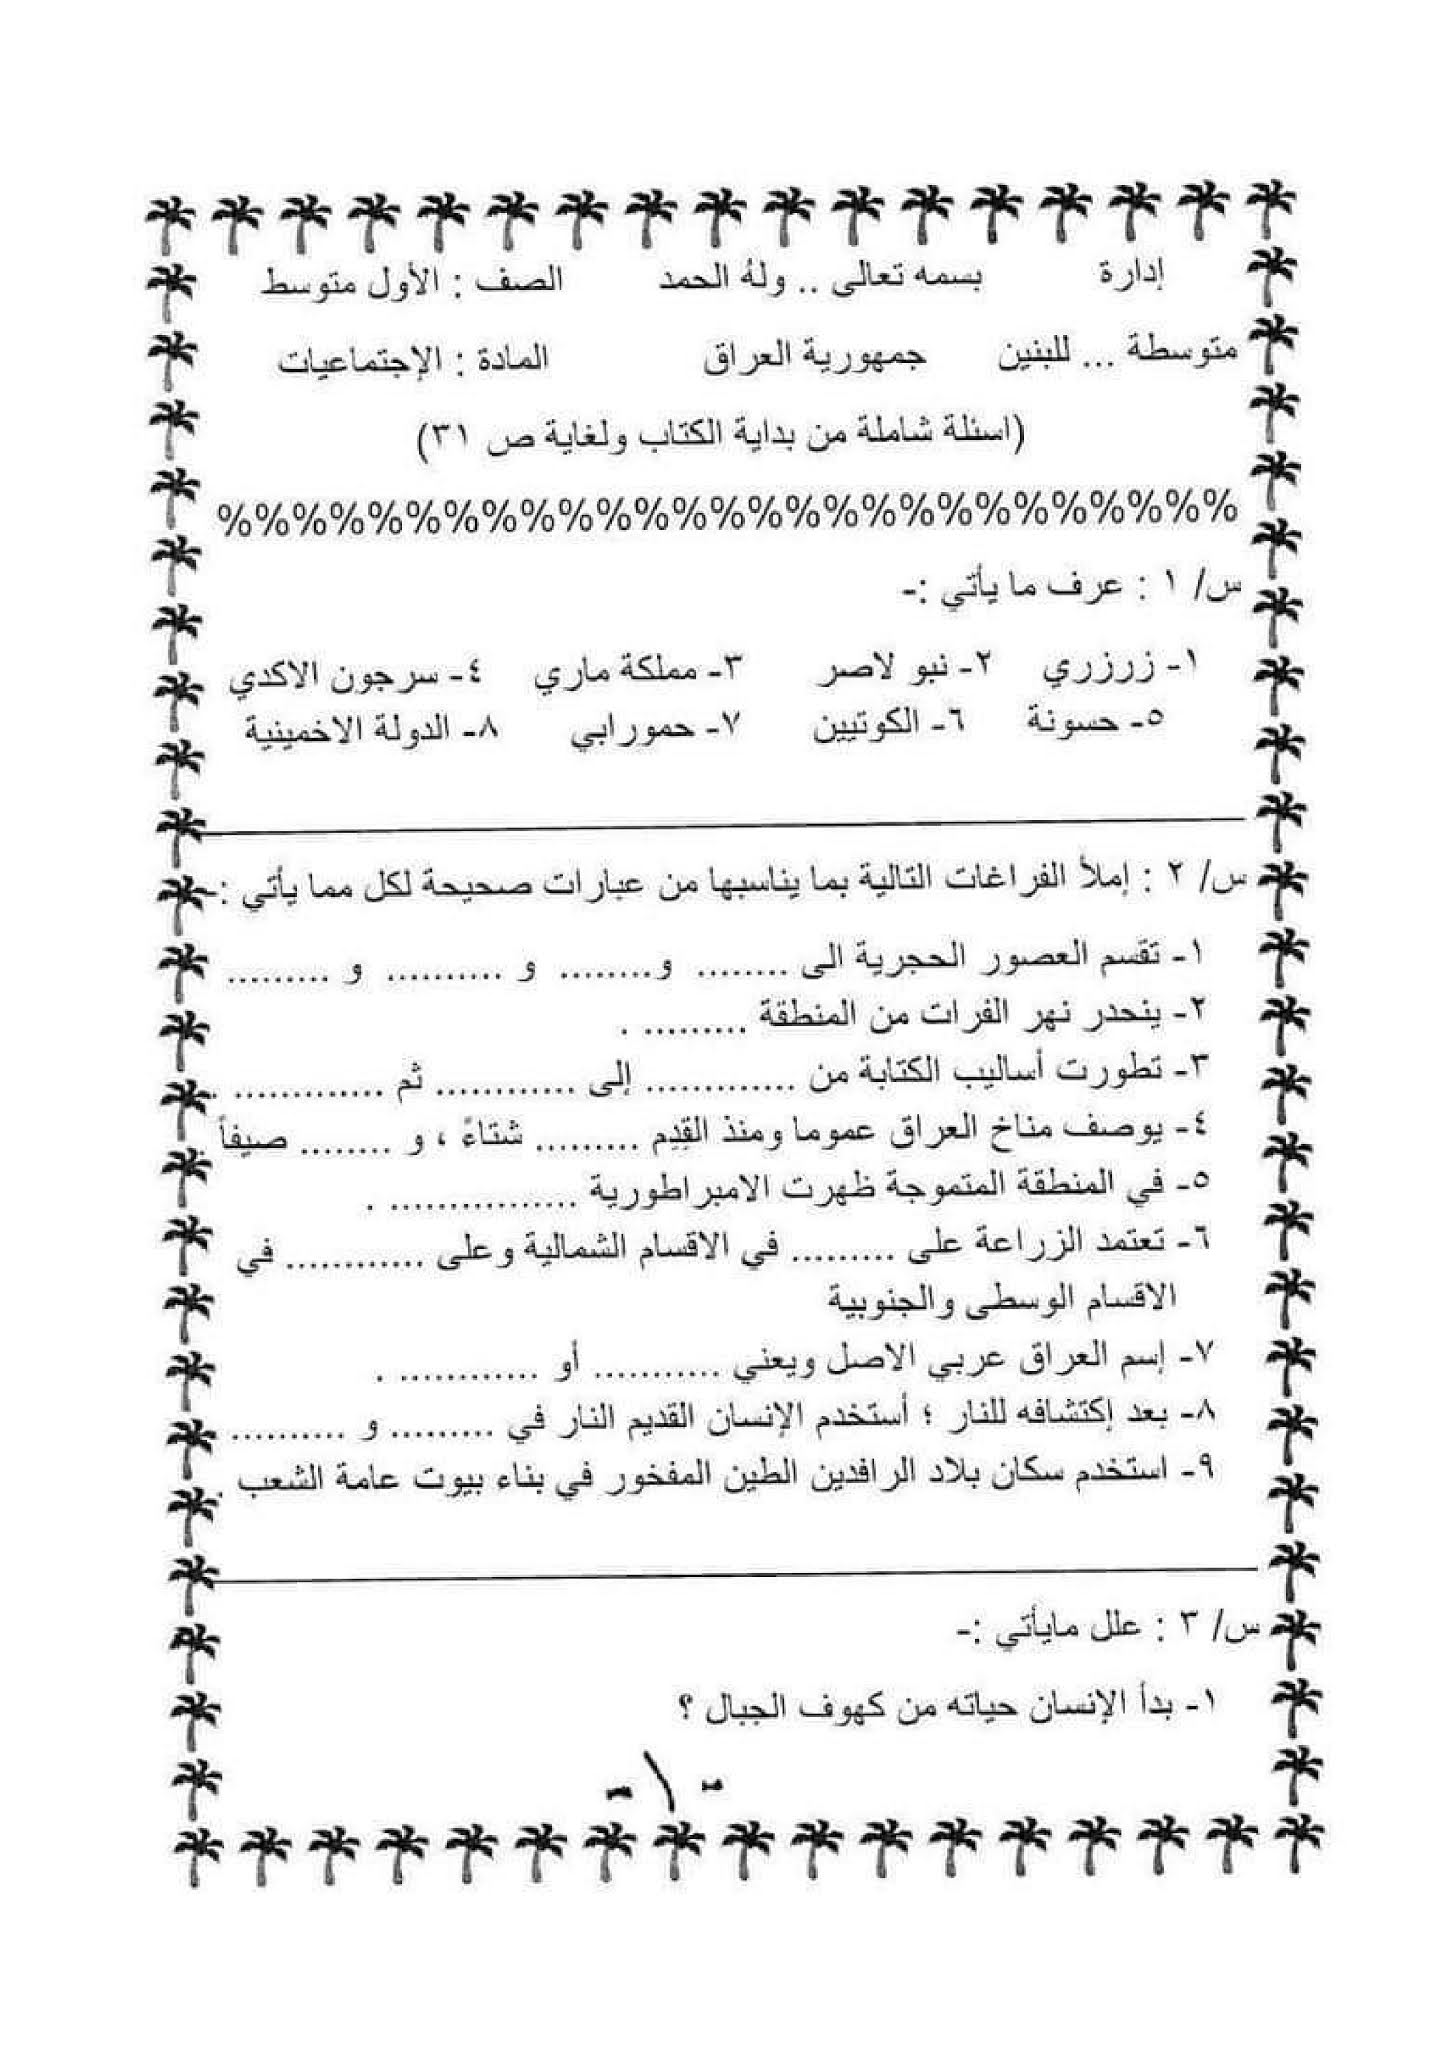 إدارة بسمه تعالى .. ولهُ الحمد الصف : الأول متوسط
متوسطة ... للبنين جمهورية العراق المادة : الإجتماعيات
(اسئلة شاملة من بداية الكتاب ولغاية ص ٣١)
%%%%%%%%%%%%%%%%%%%%%%%%%%%
س/ ١ : عرف ما يأتي :-
١- زرزري ٢- نبو لاصر ٣- مملكة ماري ٤- سرجون الاكدي
٥- حسونة ٦- الكوتيين ٧- حمورابي ٨- الدولة الاخمينية
س/ ٢ : إملأ الفراغات التالية بما يناسبها من عبارات صحيحة لكل مما يأتي :-
١- تقسم العصور الحجرية الى ........ و........ و .......... و .........
٢- ينحدر نهر الفرات من المنطقة ......... .
٣- تطورت أساليب الكتابة من ............. إلى ............ ثم ............. .
٤- يوصف مناخ العراق عموما ومنذ القِدِم ......... شتاءً ، و ........ صيفاً .
٥- في المنطقة المتموجة ظهرت الامبراطورية ................ .
٦- تعتمد الزراعة على ......... في الاقسام الشمالية وعلى ............ في
الاقسام الوسطى والجنوبية
٧- إسم العراق عربي الاصل ويعني ........... أو ............ .
٨- بعد إكتشافه للنار ؛ أستخدم الإنسان القديم النار في ......... و ..........
٩- استخدم سكان بلاد الرافدين الطين المفخور في بناء بيوت عامة الشعب .
س/ ٣ : علل مايأتي :-
١- بدأ الإنسان حياته من كهوف الجبال ؟
-١-